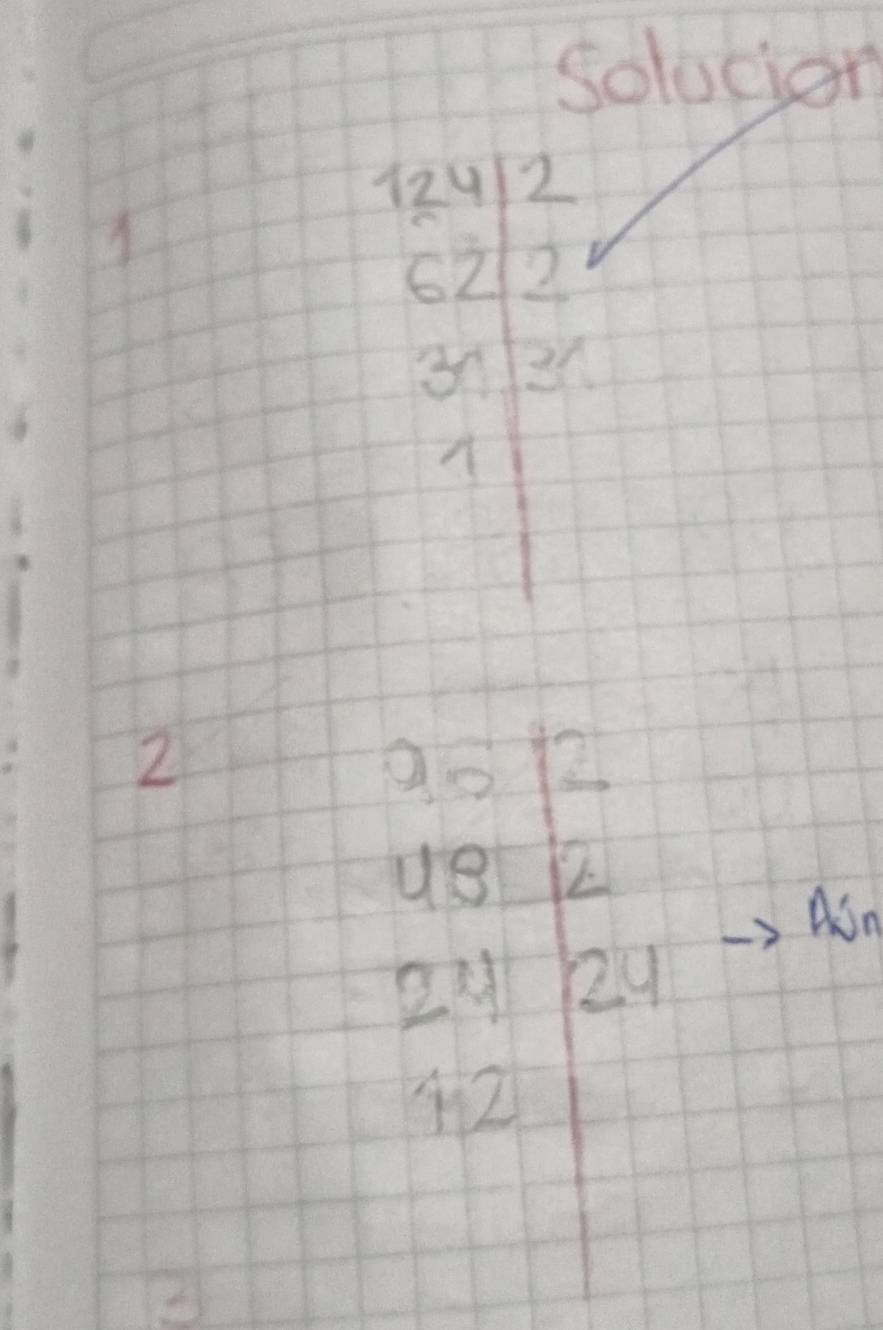 Solución
1
124 2
62 2
31 31
1
2
96 2
48 2
24 24
12
→ Aún
3